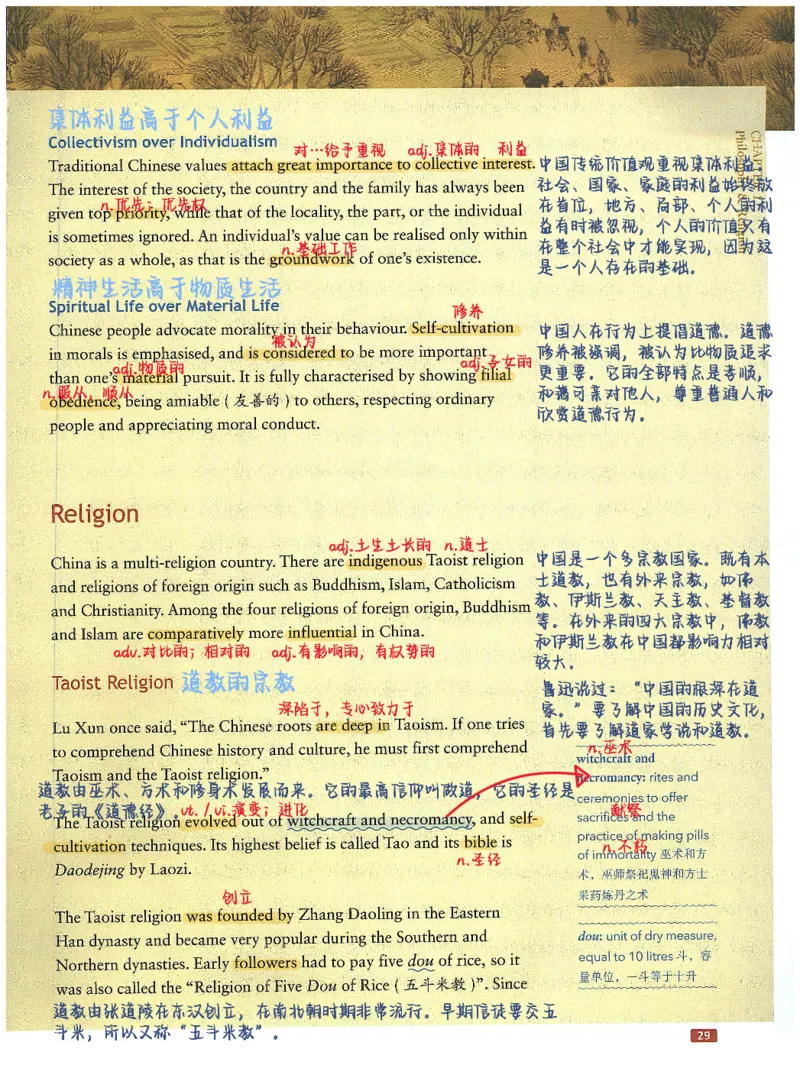 集体利益高于个人利益
Collectivism over Individualism
对…给予重视 adj.集体的 利益
Traditional Chinese values attach great importance to collective interest.
The interest of the society, the country and the family has always been
n.优先；优先权
given top priority, while that of the locality, the part, or the individual
is sometimes ignored. An individual's value can be realised only within
n.基础工作
society as a whole, as that is the groundwork of one's existence.
中国传统价值观重视集体利益。
社会、国家、家庭的利益始终放
在首位，地方、局部、个人的利
益有时被忽视，个人的价值只有
在整个社会中才能实现，因为这
是一个人存在的基础。
CHAPTER
Philosophy &
精神生活高于物质生活
Spiritual Life over Material Life
修养
Chinese people advocate morality in their behaviour. Self-cultivation
被认为
in morals is emphasised, and is considered to be more important
adj.物质的 adj.子女的
than one's material pursuit. It is fully characterised by showing filial
n.服从，顺从
obedience, being amiable ( 友善的 ) to others, respecting ordinary
people and appreciating moral conduct.
中国人在行为上提倡道德。道德
修养被强调，被认为比物质追求
更重要。它的全部特点是孝顺，
和蔼可亲对他人，尊重普通人和
欣赏道德行为。
Religion
adj.土生土长的 n.道士
China is a multi-religion country. There are indigenous Taoist religion
and religions of foreign origin such as Buddhism, Islam, Catholicism
and Christianity. Among the four religions of foreign origin, Buddhism
and Islam are comparatively more influential in China.
adv.对比的；相对的 adj.有影响的，有权势的
中国是一个多宗教国家。既有本
土道教，也有外来宗教，如佛
教、伊斯兰教、天主教、基督教
等。在外来的四大宗教中，佛教
和伊斯兰教在中国都影响力相对
较大。
Taoist Religion 道教的宗教
深陷于，专心致力于
Lu Xun once said, “The Chinese roots are deep in Taoism. If one tries
to comprehend Chinese history and culture, he must first comprehend
Taoism and the Taoist religion.”
鲁迅说过：“中国的根深在道
家。”要了解中国的历史文化，
首先要了解道家学说和道教。
道教由巫术、方术和修身术发展而来。它的最高信仰叫做道，它的圣经是
老子的《道德经》。vt. / vi.演变；进化
The Taoist religion evolved out of witchcraft and necromancy, and self-
cultivation techniques. Its highest belief is called Tao and its bible is
n.圣经
Daodejing by Laozi.
n.巫术
witchcraft and
necromancy: rites and
ceremonies to offer
献祭
sacrifices and the
practice of making pills
n.不朽
of immortality 巫术和方
术，巫师祭祀鬼神和方士
采药炼丹之术
创立
The Taoist religion was founded by Zhang Daoling in the Eastern
Han dynasty and became very popular during the Southern and
Northern dynasties. Early followers had to pay five dou of rice, so it
was also called the “Religion of Five Dou of Rice ( 五斗米教 )”. Since
dou: unit of dry measure,
equal to 10 litres 斗，容
量单位，一斗等于十升
道教由张道陵在东汉创立，在南北朝时期非常流行。早期信徒要交五
斗米，所以又称“五斗米教”。
29